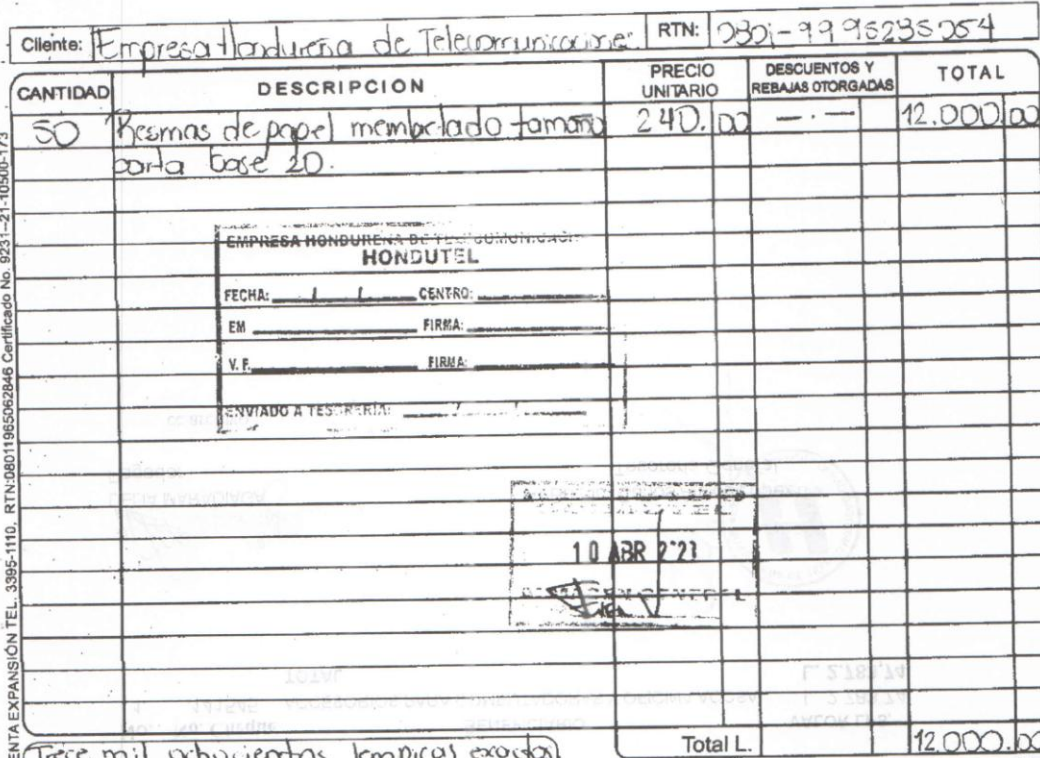 Cliente: Empresa Hondureña de Telecomunicaciones RTN:
CANTIDAD DESCRIPCION PRECIO UNITARIO DESCUENTOS Y REBAJAS OTORGADAS TOTAL
50 Resmas de papel membretado tamaño 240.00 —.— 12.000.00
carta base 20.
EMPRESA HONDUREÑA DE TELECOMUNICACI
HONDUTEL
FECHA: / / CENTRO:
EM FIRMA:
V. F. FIRMA:
ENVIADO A TESORERIA: / /
10 ABR 2021
Trece mil ochocientos lempiras exactos
Total L. 12.000.00
ENTA EXPANSIÓN TEL. 3395-1110, RTN:08011965062846 Certificado No. 9231-21-10500-173